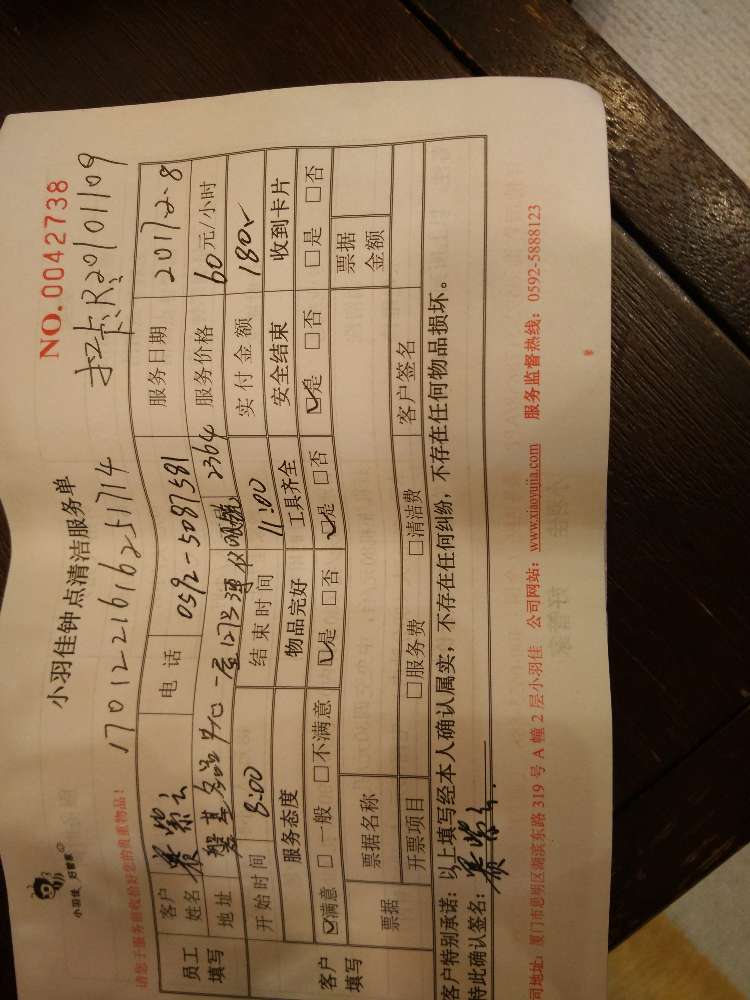 小羽佳，好管家
NO.0042738
小羽佳钟点清洁服务单
1701221616251714 扣卡:R20101109
请您于服务前收拾好您的贵重物品!
员工填写 客户姓名 电话 0592-5087581 服务日期 2017.2.8
地址 磐基名品中心一层 2364 服务价格 60元/小时
开始时间 8:00 结束时间 11:00 实付金额 180
客户填写 服务态度 物品完好 工具齐全 安全结束 收到卡片
☑满意 □一般 □不满意 ☑是 □否 ☑是 □否 ☑是 □否 □是 □否
票据 票据名称 票据金额
开票项目 □服务费 □清洁费 客户签名
客户特别承诺：以上填写经本人确认属实，不存在任何纠纷，不存在任何物品损坏。
特此确认签名：
司地址：厦门市思明区湖滨东路 319 号 A 幢 2 层小羽佳 公司网站：www.xiaoyujia.com 服务监督热线：0592-5888123